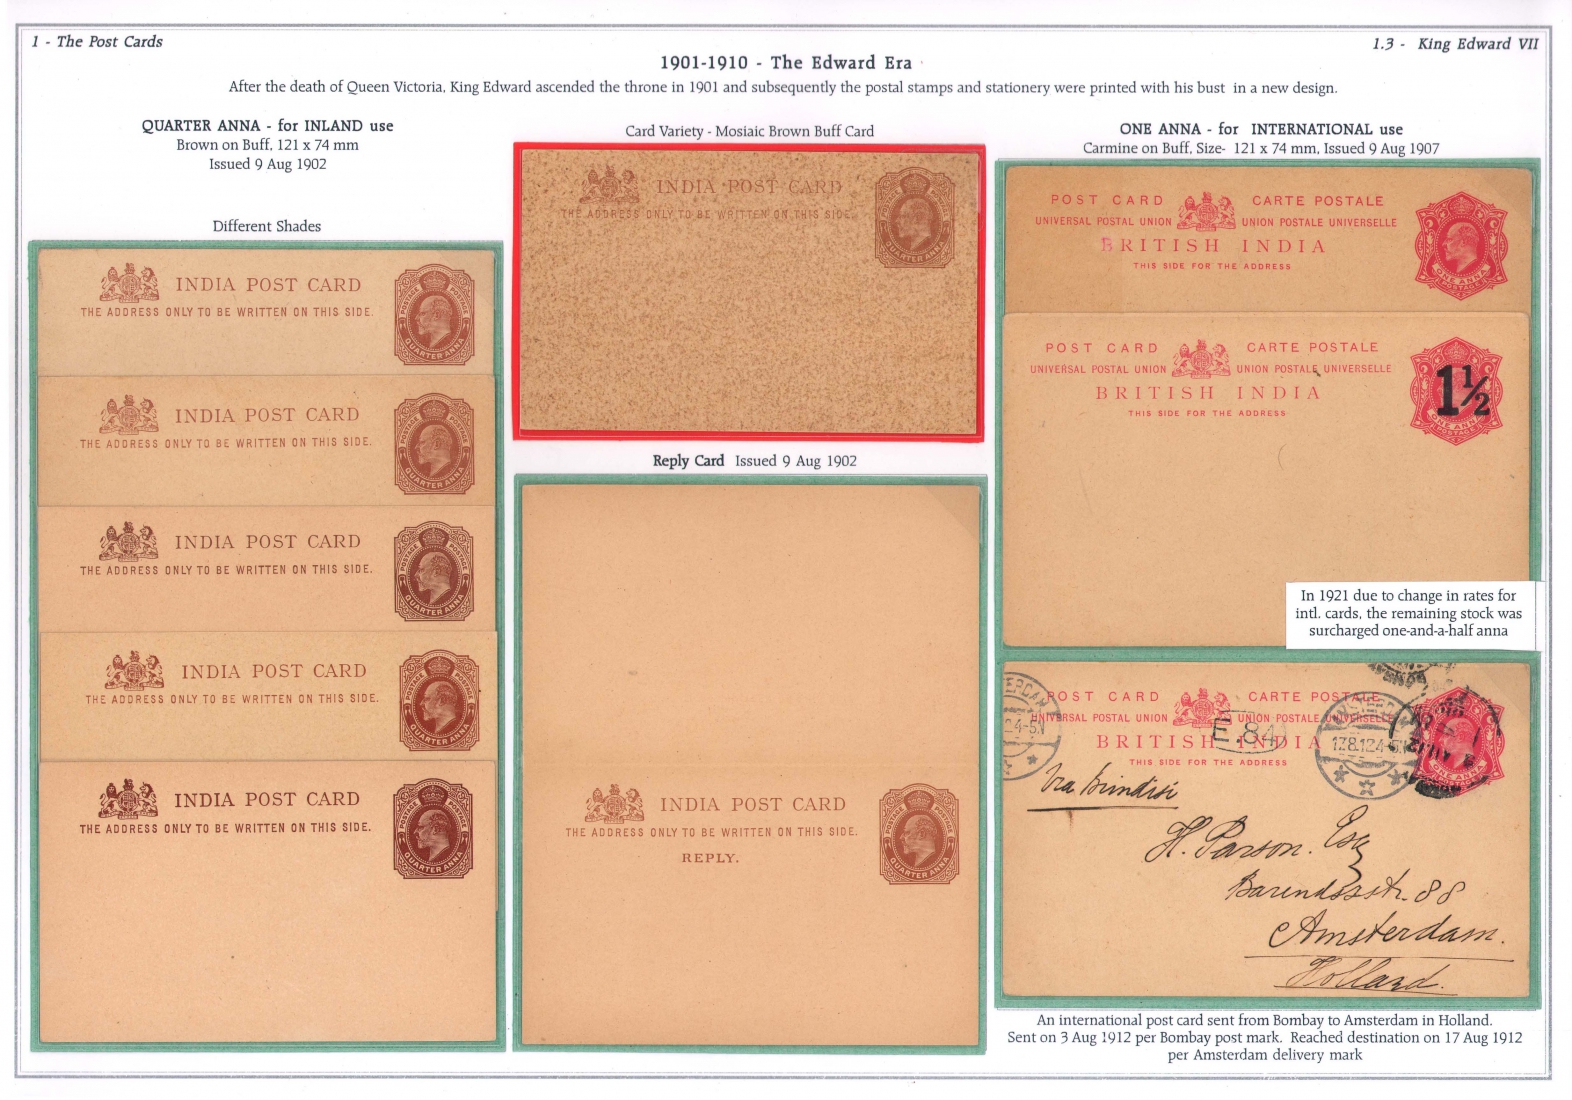 1 - The Post Cards
1.3 - King Edward VII
1901-1910 - The Edward Era
After the death of Queen Victoria, King Edward ascended the throne in 1901 and subsequently the postal stamps and stationery were printed with his bust in a new design.
QUARTER ANNA - for INLAND use
Brown on Buff, 121 x 74 mm
Issued 9 Aug 1902
Different Shades
INDIA POST CARD
THE ADDRESS ONLY TO BE WRITTEN ON THIS SIDE.
POSTAGE POSTAGE
QUARTER ANNA
INDIA POST CARD
THE ADDRESS ONLY TO BE WRITTEN ON THIS SIDE.
POSTAGE POSTAGE
QUARTER ANNA
INDIA POST CARD
THE ADDRESS ONLY TO BE WRITTEN ON THIS SIDE.
POSTAGE POSTAGE
QUARTER ANNA
INDIA POST CARD
THE ADDRESS ONLY TO BE WRITTEN ON THIS SIDE.
POSTAGE POSTAGE
QUARTER ANNA
INDIA POST CARD
THE ADDRESS ONLY TO BE WRITTEN ON THIS SIDE.
POSTAGE POSTAGE
QUARTER ANNA
Card Variety - Mosiaic Brown Buff Card
INDIA POST CARD
THE ADDRESS ONLY TO BE WRITTEN ON THIS SIDE.
POSTAGE POSTAGE
QUARTER ANNA
Reply Card Issued 9 Aug 1902
INDIA POST CARD
THE ADDRESS ONLY TO BE WRITTEN ON THIS SIDE.
REPLY.
POSTAGE POSTAGE
QUARTER ANNA
ONE ANNA - for INTERNATIONAL use
Carmine on Buff, Size- 121 x 74 mm, Issued 9 Aug 1907
POST CARD CARTE POSTALE
UNIVERSAL POSTAL UNION UNION POSTALE UNIVERSELLE
BRITISH INDIA
THIS SIDE FOR THE ADDRESS
ONE ANNA
POSTAGE
POST CARD CARTE POSTALE
UNIVERSAL POSTAL UNION UNION POSTALE UNIVERSELLE
BRITISH INDIA
THIS SIDE FOR THE ADDRESS
1½
ONE ANNA
POSTAGE
In 1921 due to change in rates for
intl. cards, the remaining stock was
surcharged one-and-a-half anna
POST CARD CARTE POSTALE
UNIVERSAL POSTAL UNION UNION POSTALE UNIVERSELLE
BRITISH INDIA
THIS SIDE FOR THE ADDRESS
E.84
AMSTERDAM
17.8.12.4-5N
ONE ANNA
POSTAGE
Via Brindisi
H. Parson. Esq
Barendszstr. 88
Amsterdam.
Holland.
An international post card sent from Bombay to Amsterdam in Holland.
Sent on 3 Aug 1912 per Bombay post mark. Reached destination on 17 Aug 1912
per Amsterdam delivery mark